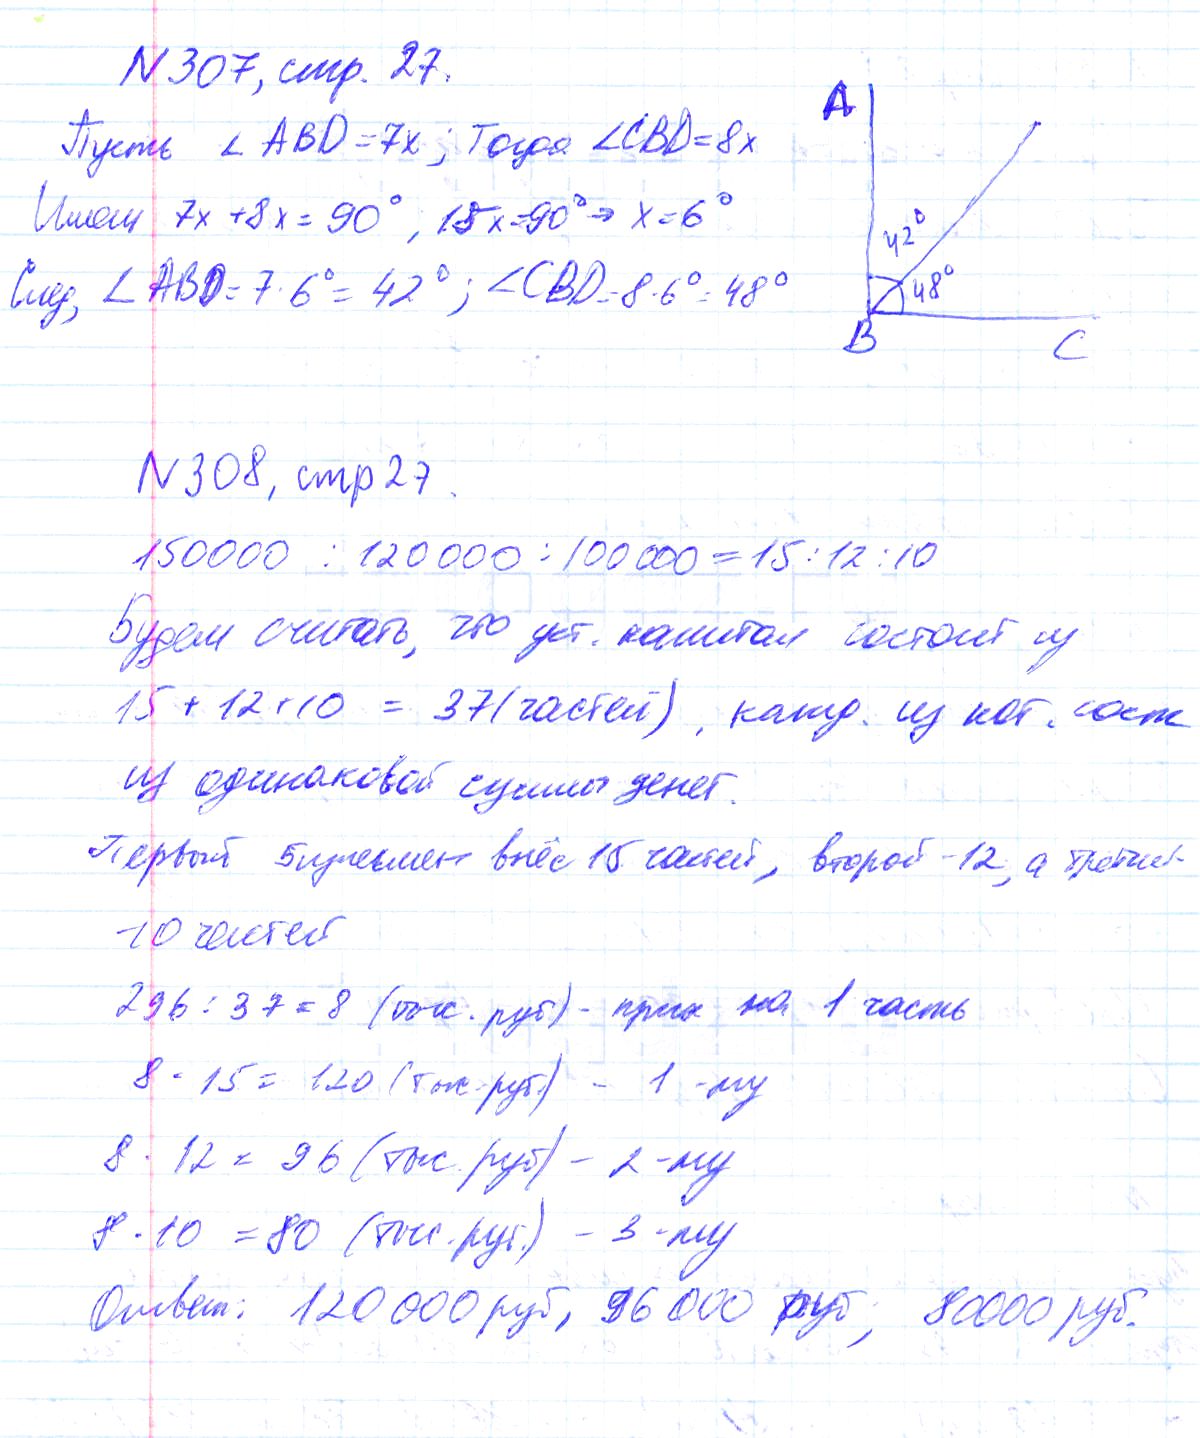 N 307, стр. 27.
Пусть ∠ABD=7x; Тогда ∠CBD=8x
Имеем 7x+8x=90°, 15x=90°→ x=6°
След, ∠ABD=7·6°=42°; ∠CBD=8·6°=48°
A
42°
48°
B
C
N 308, стр 27.
150000 : 120000 : 100000 = 15:12:10
Будем считать, что уст. капитал состоит из
15+12+10 = 37(частей), кажд. из кот. сост
из одинаковой суммы денег.
Первый бизнесмен внёс 15 частей, второй -12, а третий-
-10 частей
296:37=8 (тыс. руб) - прих на 1 часть
8·15=120 (тыс.руб.) - 1-му
8·12=96 (тыс.руб) - 2-му
8·10=80 (тыс.руб.) - 3-му
Ответ: 120 000 руб, 96 000 руб; 80000 руб.